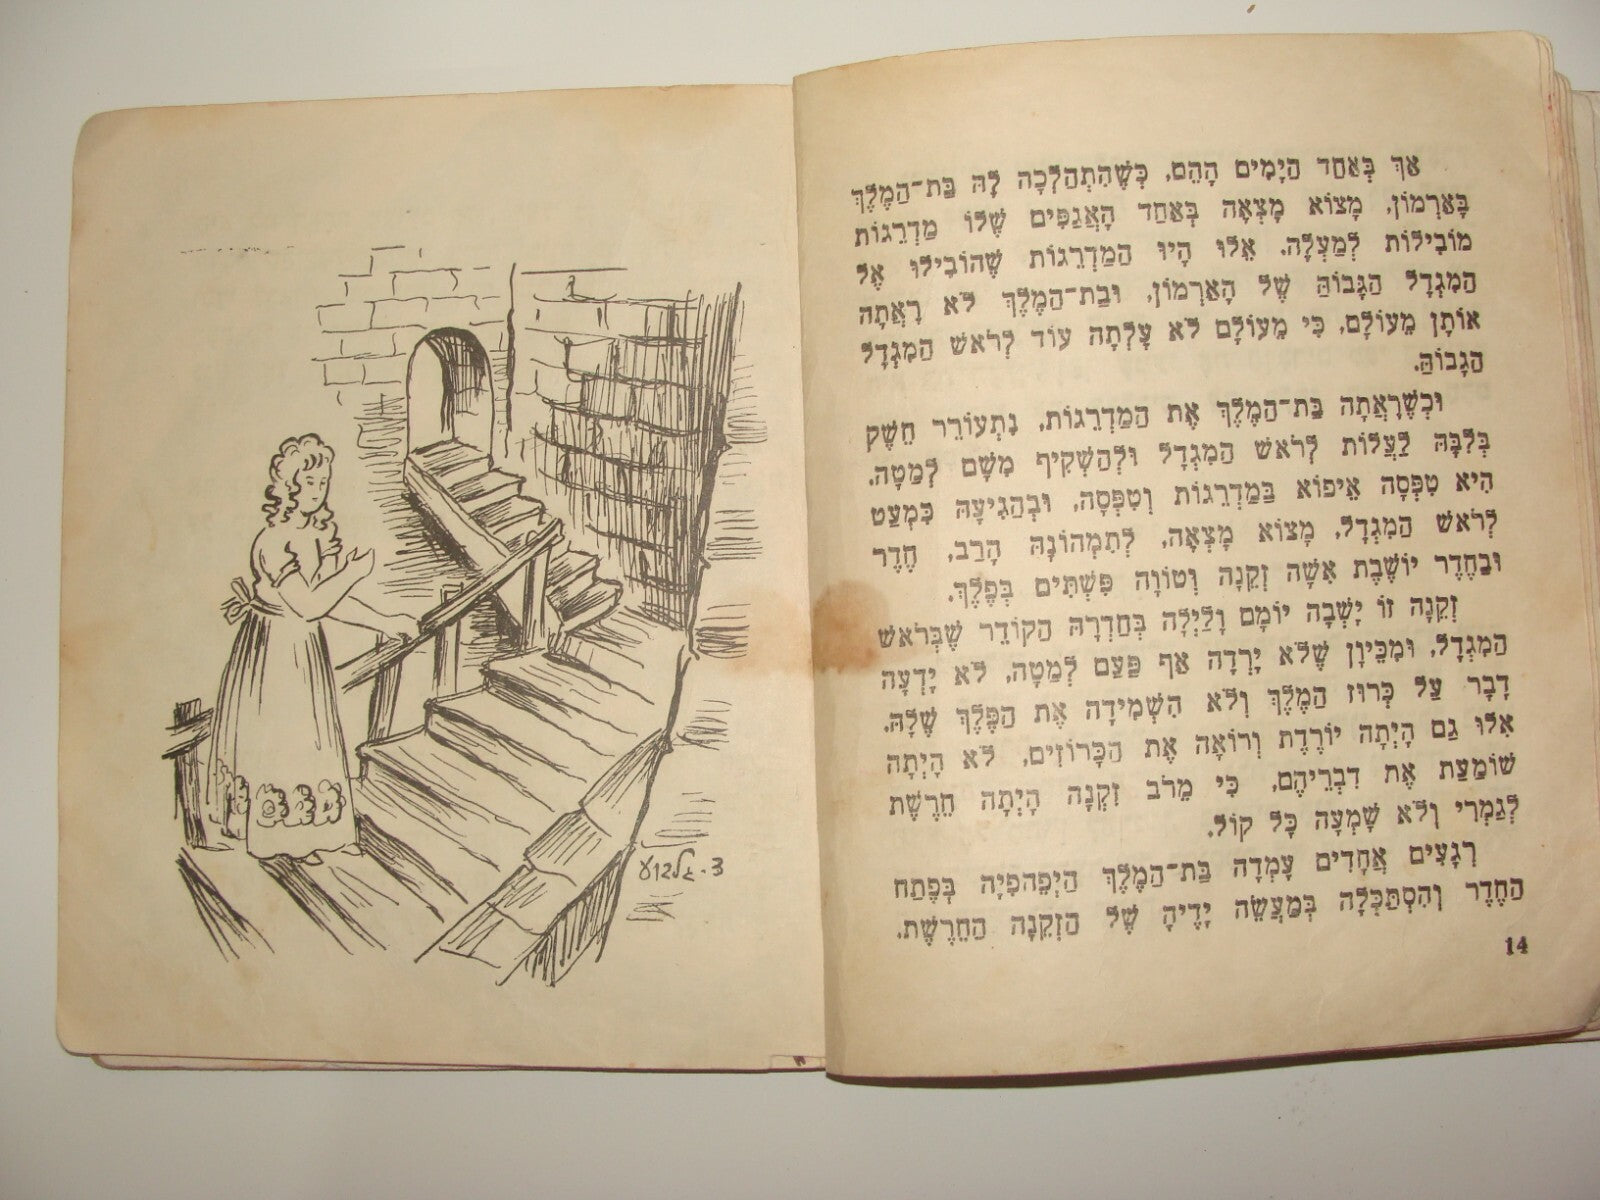 אַךְ בְּאַחַד הַיָּמִים הָהֵם, כְּשֶׁהִתְהַלְּכָה לָהּ בַּת־הַמֶּלֶךְ
בָּאַרְמוֹן, מָצוֹא מָצְאָה בְּאַחַד הָאֲגַפִּים שֶׁלּוֹ מַדְרֵגוֹת
מוֹבִילוֹת לְמַעְלָה. אֵלּוּ הָיוּ הַמַּדְרֵגוֹת שֶׁהוֹבִילוּ אֶל
הַמִּגְדָּל הַגָּבוֹהַּ שֶׁל הָאַרְמוֹן, וּבַת־הַמֶּלֶךְ לֹא רָאֲתָה
אוֹתָן מֵעוֹלָם, כִּי מֵעוֹלָם לֹא עָלְתָה עוֹד לְרֹאשׁ הַמִּגְדָּל
הַגָּבוֹהַּ.
וּכְשֶׁרָאֲתָה בַּת־הַמֶּלֶךְ אֶת הַמַּדְרֵגוֹת, נִתְעוֹרֵר חֵשֶׁק
בְּלִבָּהּ לַעֲלוֹת לְרֹאשׁ הַמִּגְדָּל וּלְהַשְׁקִיף מִשָּׁם לְמַטָּה.
הִיא טִפְּסָה אֵיפוֹא בַּמַּדְרֵגוֹת וְטִפְּסָה, וּבְהַגִּיעָהּ כִּמְעַט
לְרֹאשׁ הַמִּגְדָּל, מָצוֹא מָצְאָה, לְתִמְהוֹנָהּ הָרַב, חֶדֶר
וּבַחֶדֶר יוֹשֶׁבֶת אִשָּׁה זְקֵנָה וְטוֹוָה פִּשְׁתִּים בְּפֶלֶךְ.
זְקֵנָה זוֹ יָשְׁבָה יוֹמָם וָלַיְלָה בְּחַדְרָהּ הַקּוֹדֵר שֶׁבְּרֹאשׁ
הַמִּגְדָּל, וּמִכֵּיוָן שֶׁלֹּא יָרְדָה אַף פַּעַם לְמַטָּה, לֹא יָדְעָה
דָבָר עַל כְּרוּז הַמֶּלֶךְ וְלֹא הִשְׁמִידָה אֶת הַפֶּלֶךְ שֶׁלָּהּ.
אִלּוּ גַם הָיְתָה יוֹרֶדֶת וְרוֹאָה אֶת הַכָּרוֹזִים, לֹא הָיְתָה
שׁוֹמַעַת אֶת דִּבְרֵיהֶם, כִּי מֵרֹב זִקְנָה הָיְתָה חֵרֶשֶׁת
לְגַמְרֵי וְלֹא שָׁמְעָה כָּל קוֹל.
רְגָעִים אֲחָדִים עָמְדָה בַּת־הַמֶּלֶךְ הַיְפֵהפִיָּה בְּפֶתַח
הַחֶדֶר וְהִסְתַּכְּלָה בְּמַעֲשֵׂה יָדֶיהָ שֶׁל הַזְּקֵנָה הַחֵרֶשֶׁת.
14
צ. גלבוע